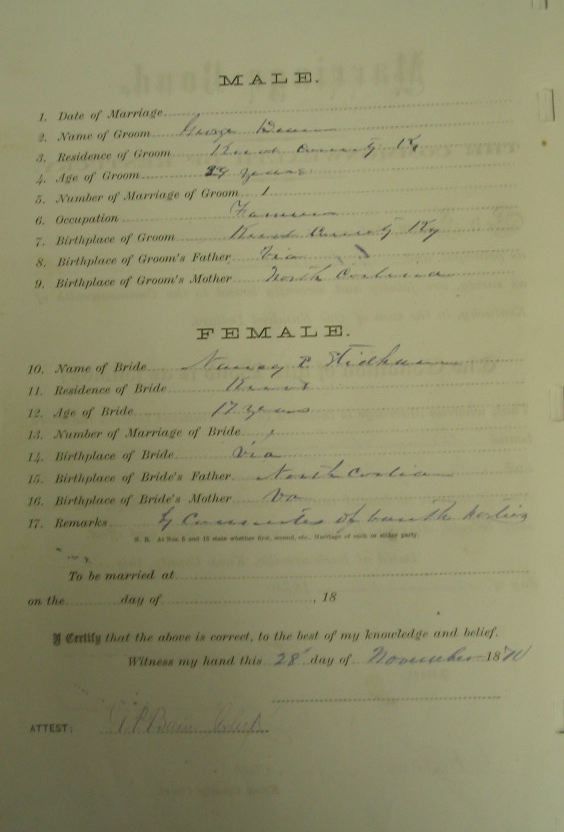 MALE.
1. Date of Marriage
2. Name of Groom George
3. Residence of Groom Knox County Ky
4. Age of Groom 29 years
5. Number of Marriage of Groom 1
6. Occupation Farmer
7. Birthplace of Groom Knox County Ky
8. Birthplace of Groom's Father Via
9. Birthplace of Groom's Mother North
FEMALE.
10. Name of Bride Nancy E Stidham
11. Residence of Bride Knox
12. Age of Bride 17 years
13. Number of Marriage of Bride 1
14. Birthplace of Bride Via
15. Birthplace of Bride's Father North
16. Birthplace of Bride's Mother Va
17. Remarks By of
N. B. At Nos. 5 and 13 state whether first, second, etc., Marriage of each or either party.
To be married at
on the day of , 18
I Certify that the above is correct, to the best of my knowledge and belief.
Witness my hand this 28 day of November 18
ATTEST: Clerk